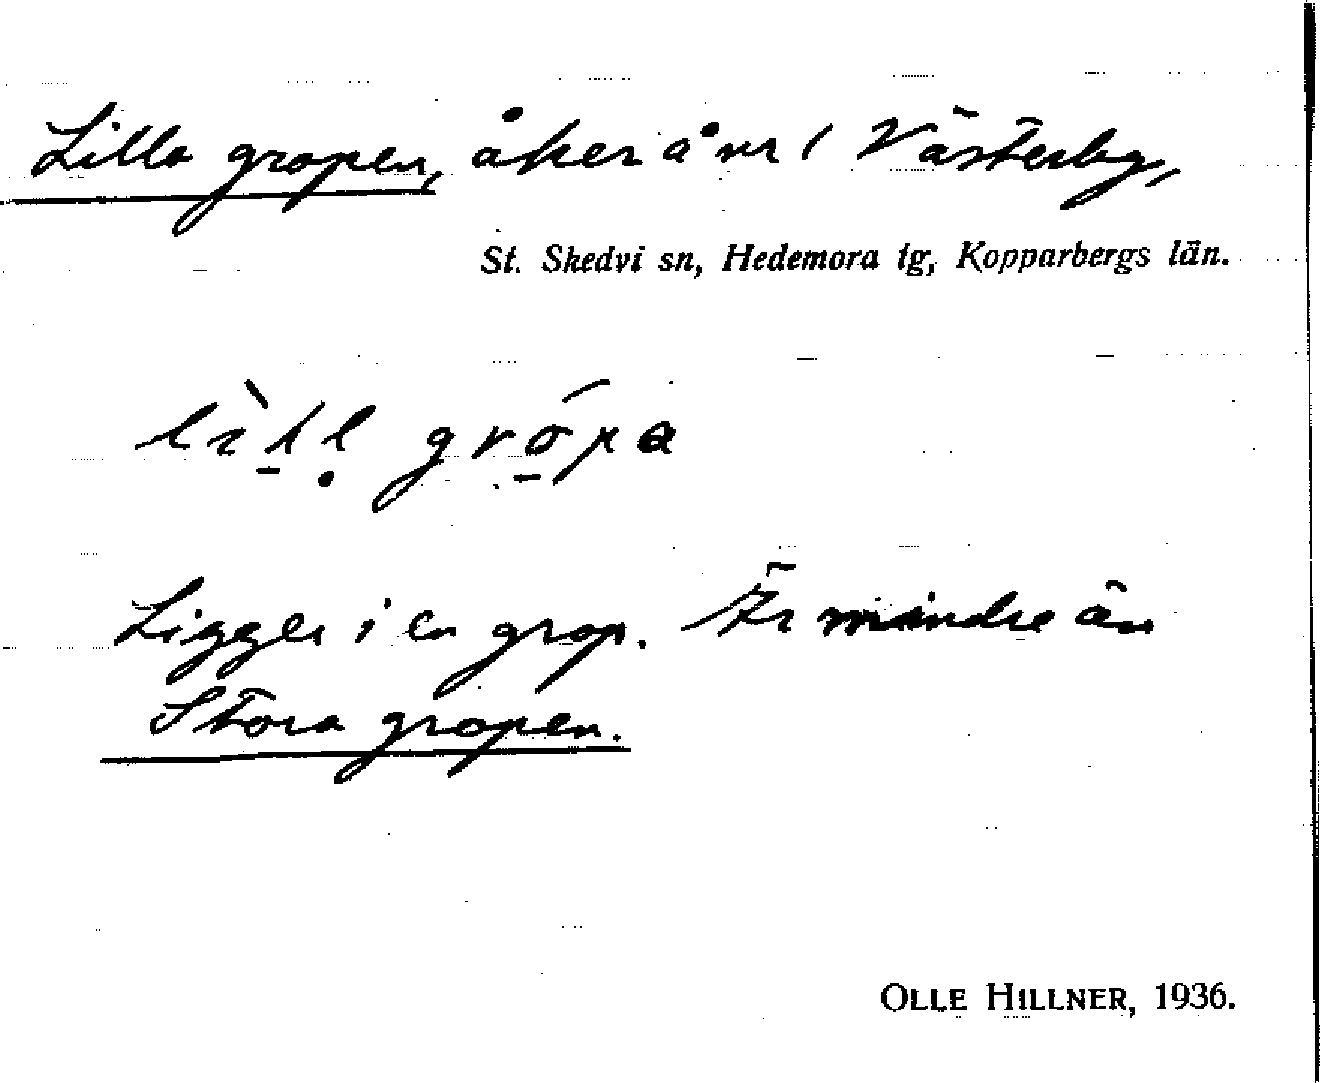 Lilla gropen, åker å nr 1 Västerby,
St. Skedvi sn, Hedemora tg, Kopparbergs län.
Ligger i en grop. Är mindre än
Stora gropen.
OLLE HILLNER, 1936.